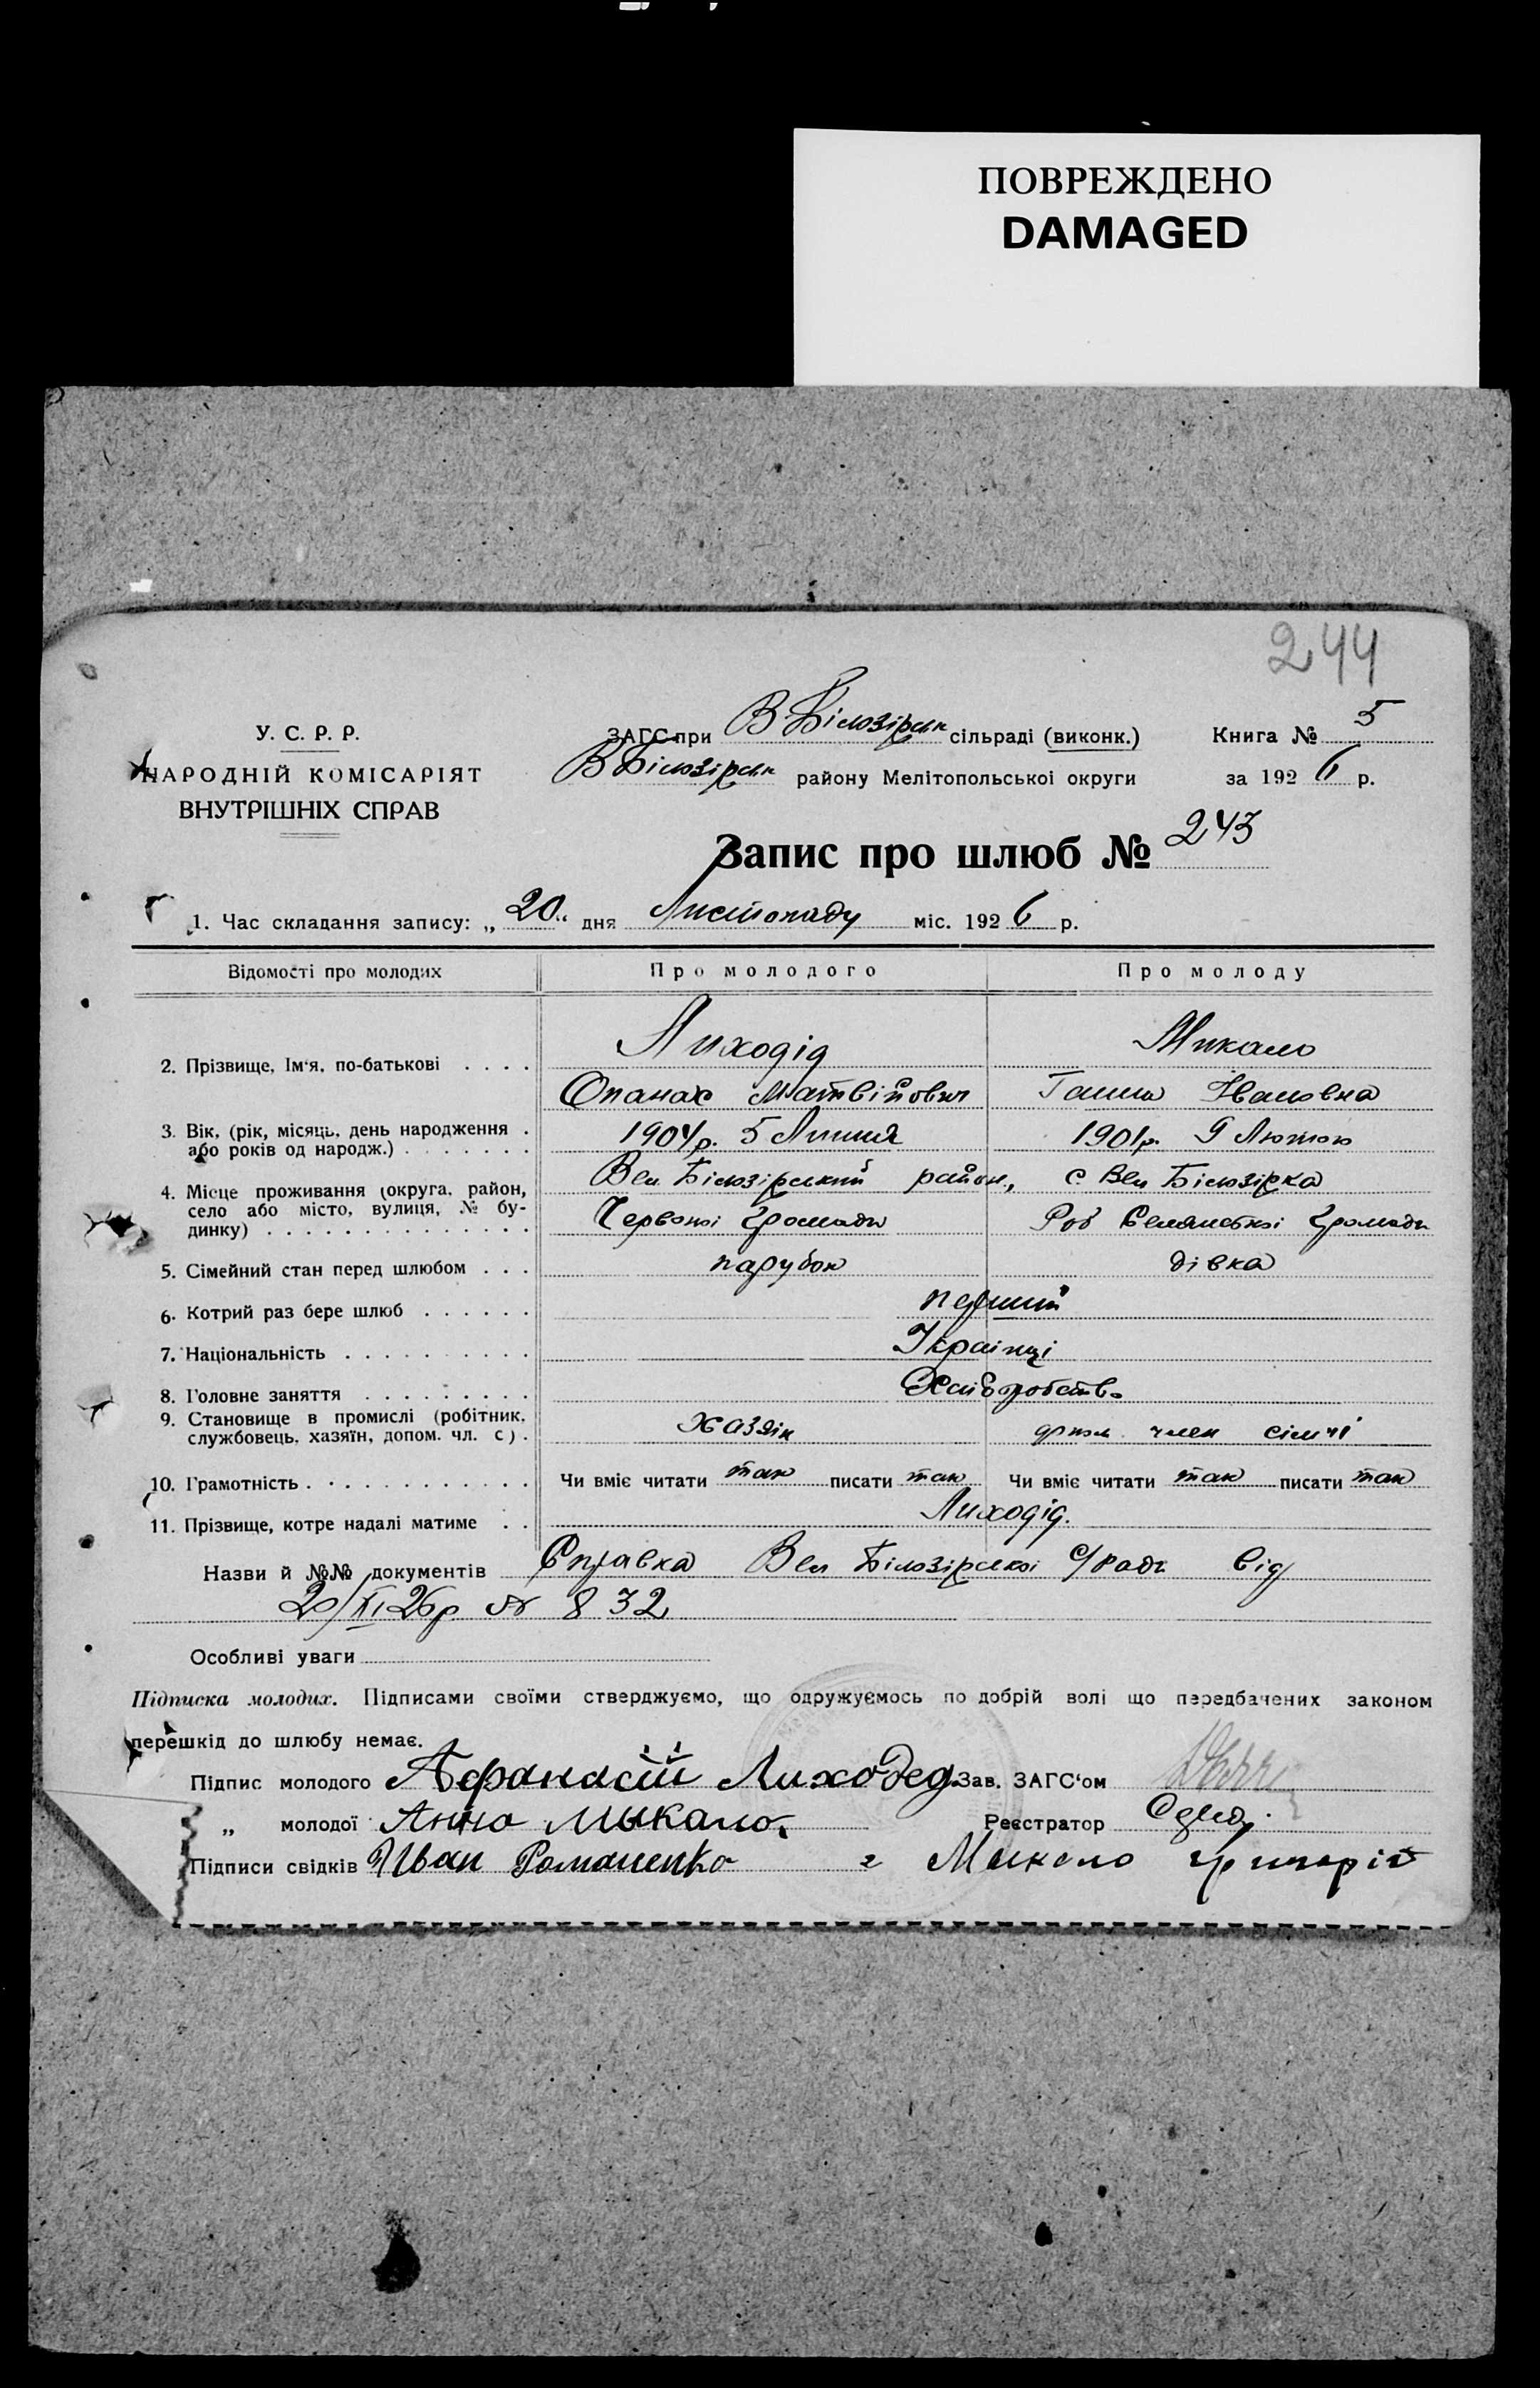 ПОВРЕЖДЕНО
DAMAGED
244
У. С. Р. Р.
НАРОДНІЙ КОМІСАРІЯТ
ВНУТРІШНІХ СПРАВ
ЗАГС при В Білозірськ сільраді (виконк.) Книга № 5
В Білозірськ району Мелітопольської округи за 1926 р.
Запис про шлюб № 243
1. Час складання запису: „20“ дня Листопаду міс. 1926 р.
Відомості про молодих Про молодого Про молоду
2. Прізвище, Ім‘я, по-батькові . . . . Лиходід Микало
Опанас Матвійович Ганна Івановна
3. Вік, (рік, місяць, день народження . або років од народж.) . . . . . . . 1904р. 5 Липня 1901р. 9 Лютого
4. Місце проживання (округа, район, Вел Білозірський район, с Вел Білозірка
село або місто, вулиця, № бу-
динку) . . . . . . . . . . . . . Червоної Громади Роб Селянської Громади
5. Сімейний стан перед шлюбом . . . парубок дівка
6. Котрий раз бере шлюб . . . . . . перший
7. Національність . . . . . . . . . . Українці
8. Головне заняття . . . . . . . . . Хліборобство
9. Становище в промислі (робітник,
службовець, хазяїн, допом. чл. с) . хазяїн член сімї
10. Грамотність . . . . . . . . . . . Чи вміє читати так писати так Чи вміє читати так писати так
11. Прізвище, котре надалі матиме . . Лиходід.
Назви й №№ документів Справка Вел Білозірської с/ради від
20/XI 26р № 832
Особливі уваги
Підписка молодих. Підписами своїми стверджуємо, що одружуємось по добрій волі що передбачених законом
перешкід до шлюбу немає.
Підпис молодого Афанасій Лиходед Зав. ЗАГС‘ом
„ молодої Анна Мыкало. Реєстратор
Підписи свідків Иван Романенко 2 Микало Григорій